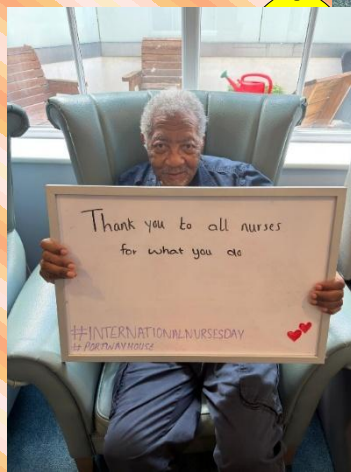 Thank you to all nurses
for what you do
#INTERNATIONALNURSESDAY
#PORTWAYHOUSE